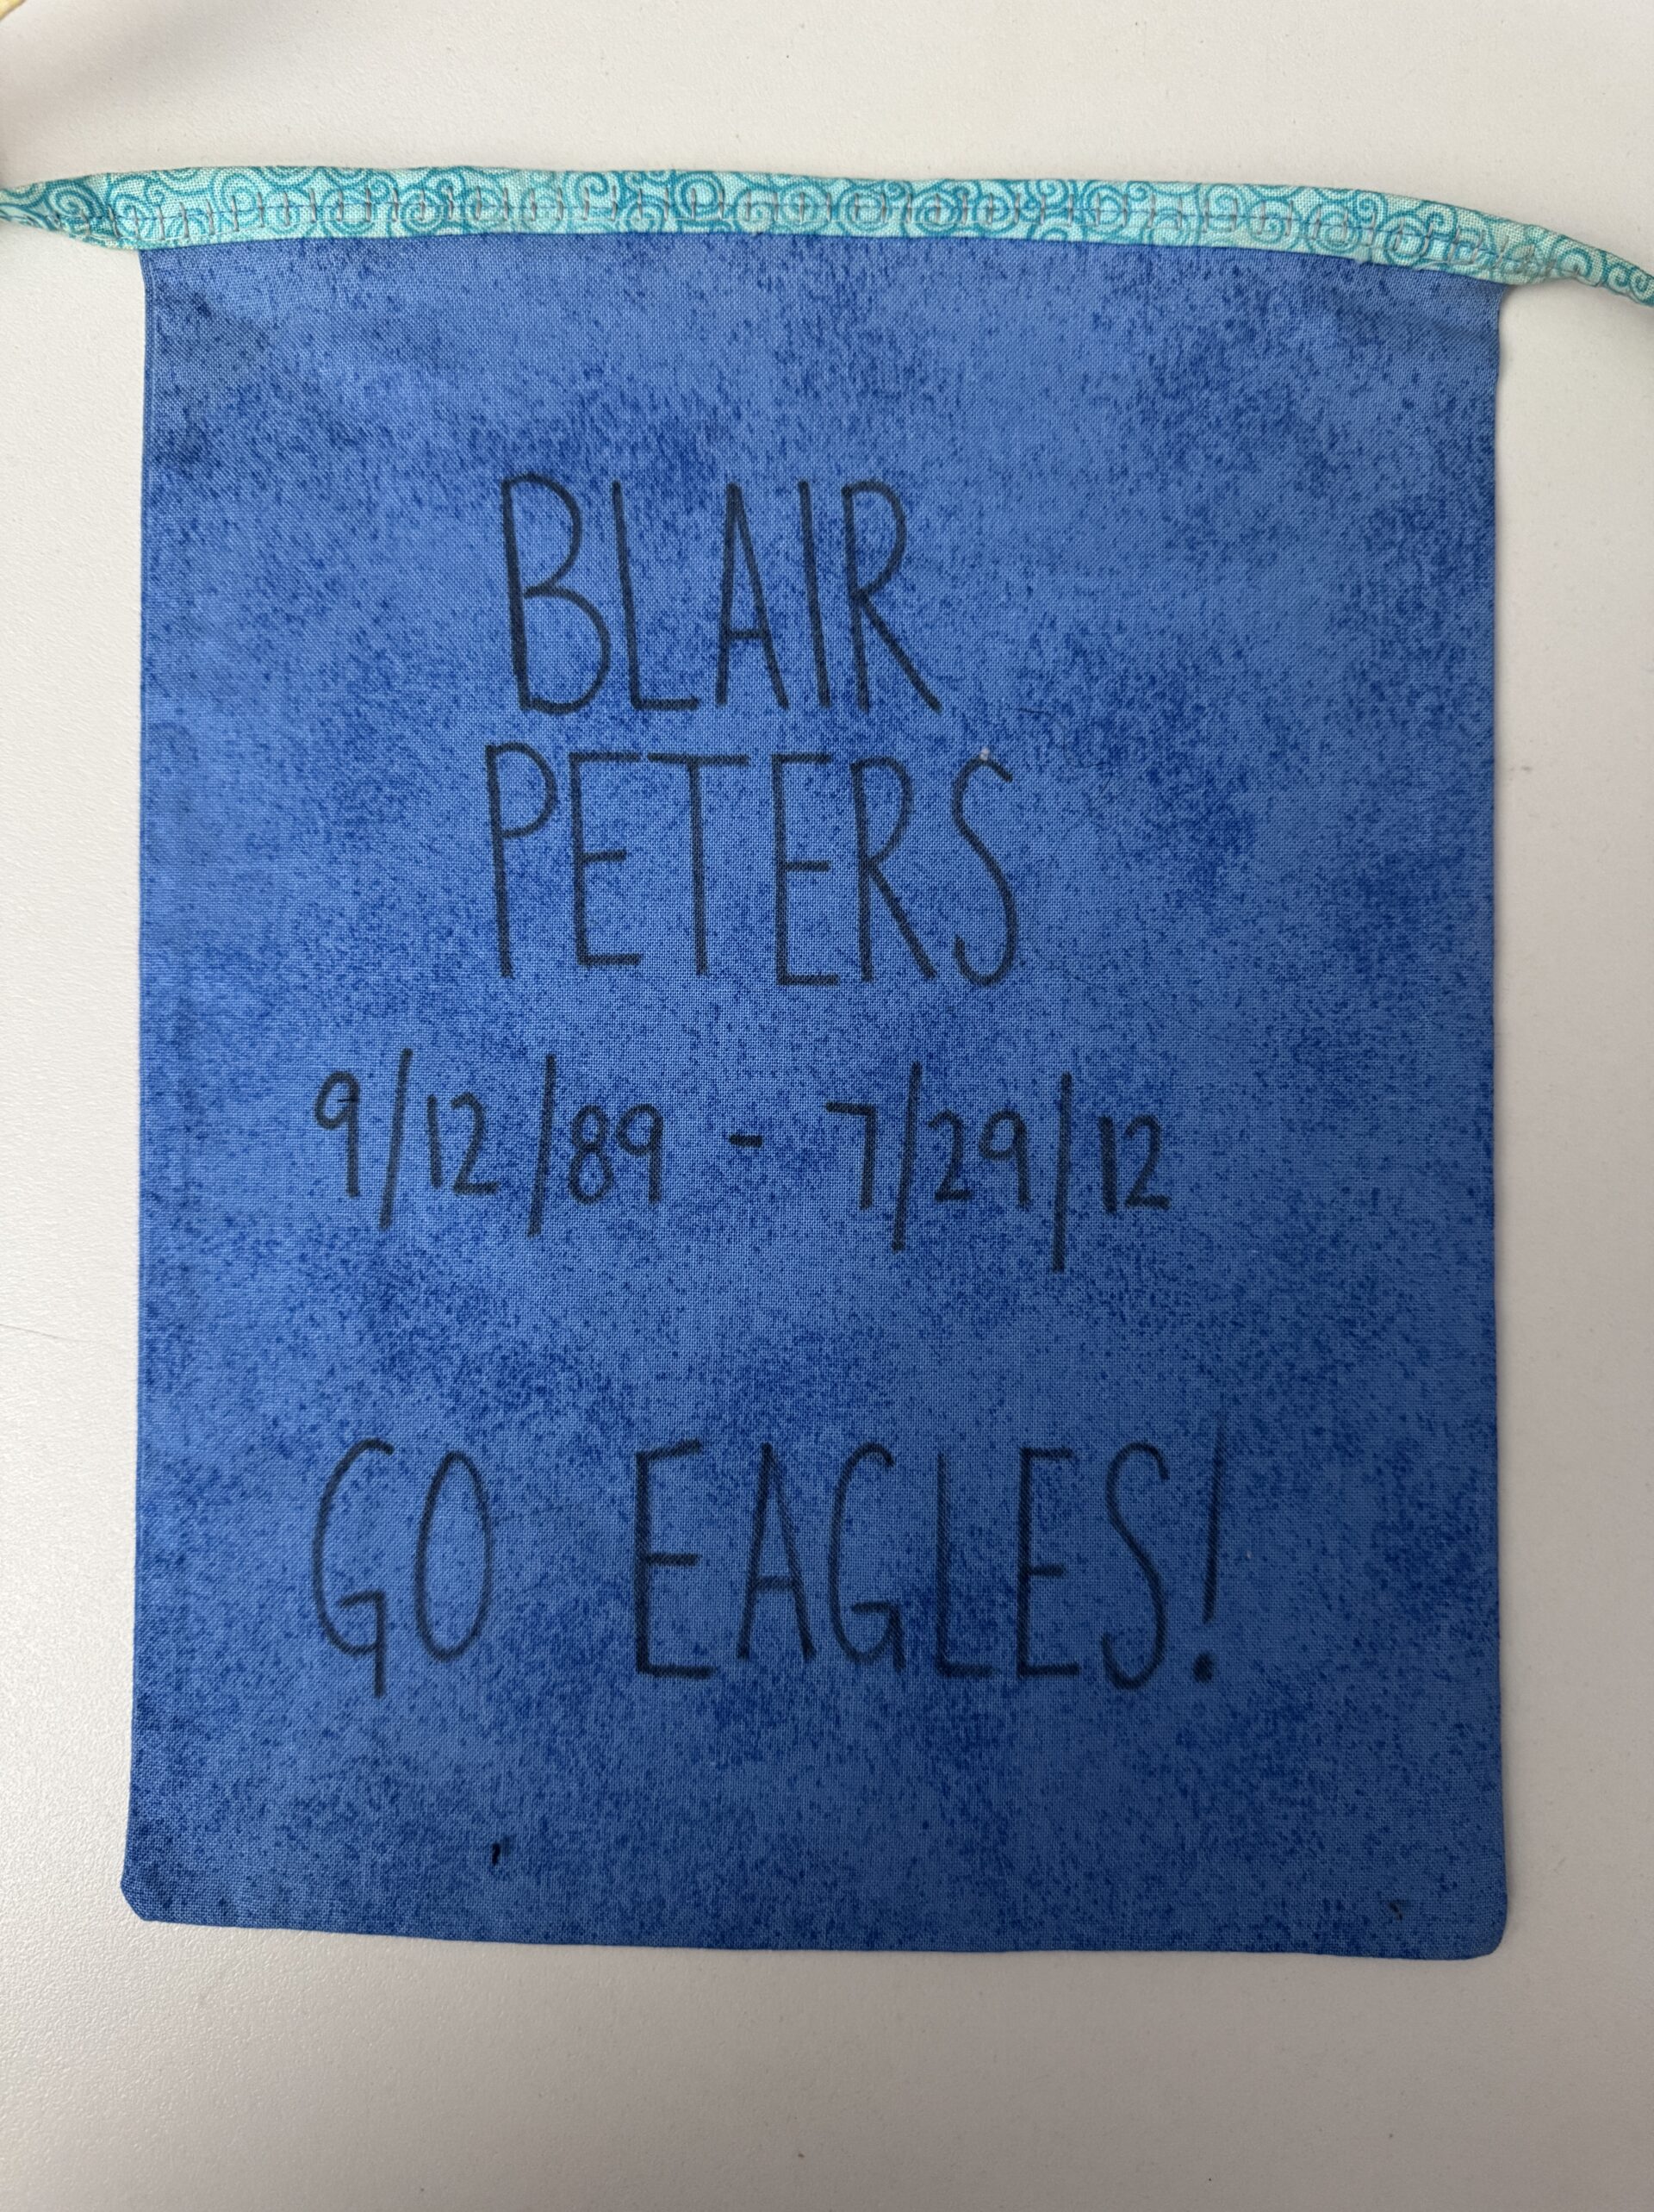 BLAIR
PETERS
9/12/89 - 7/29/12
GO EAGLES!